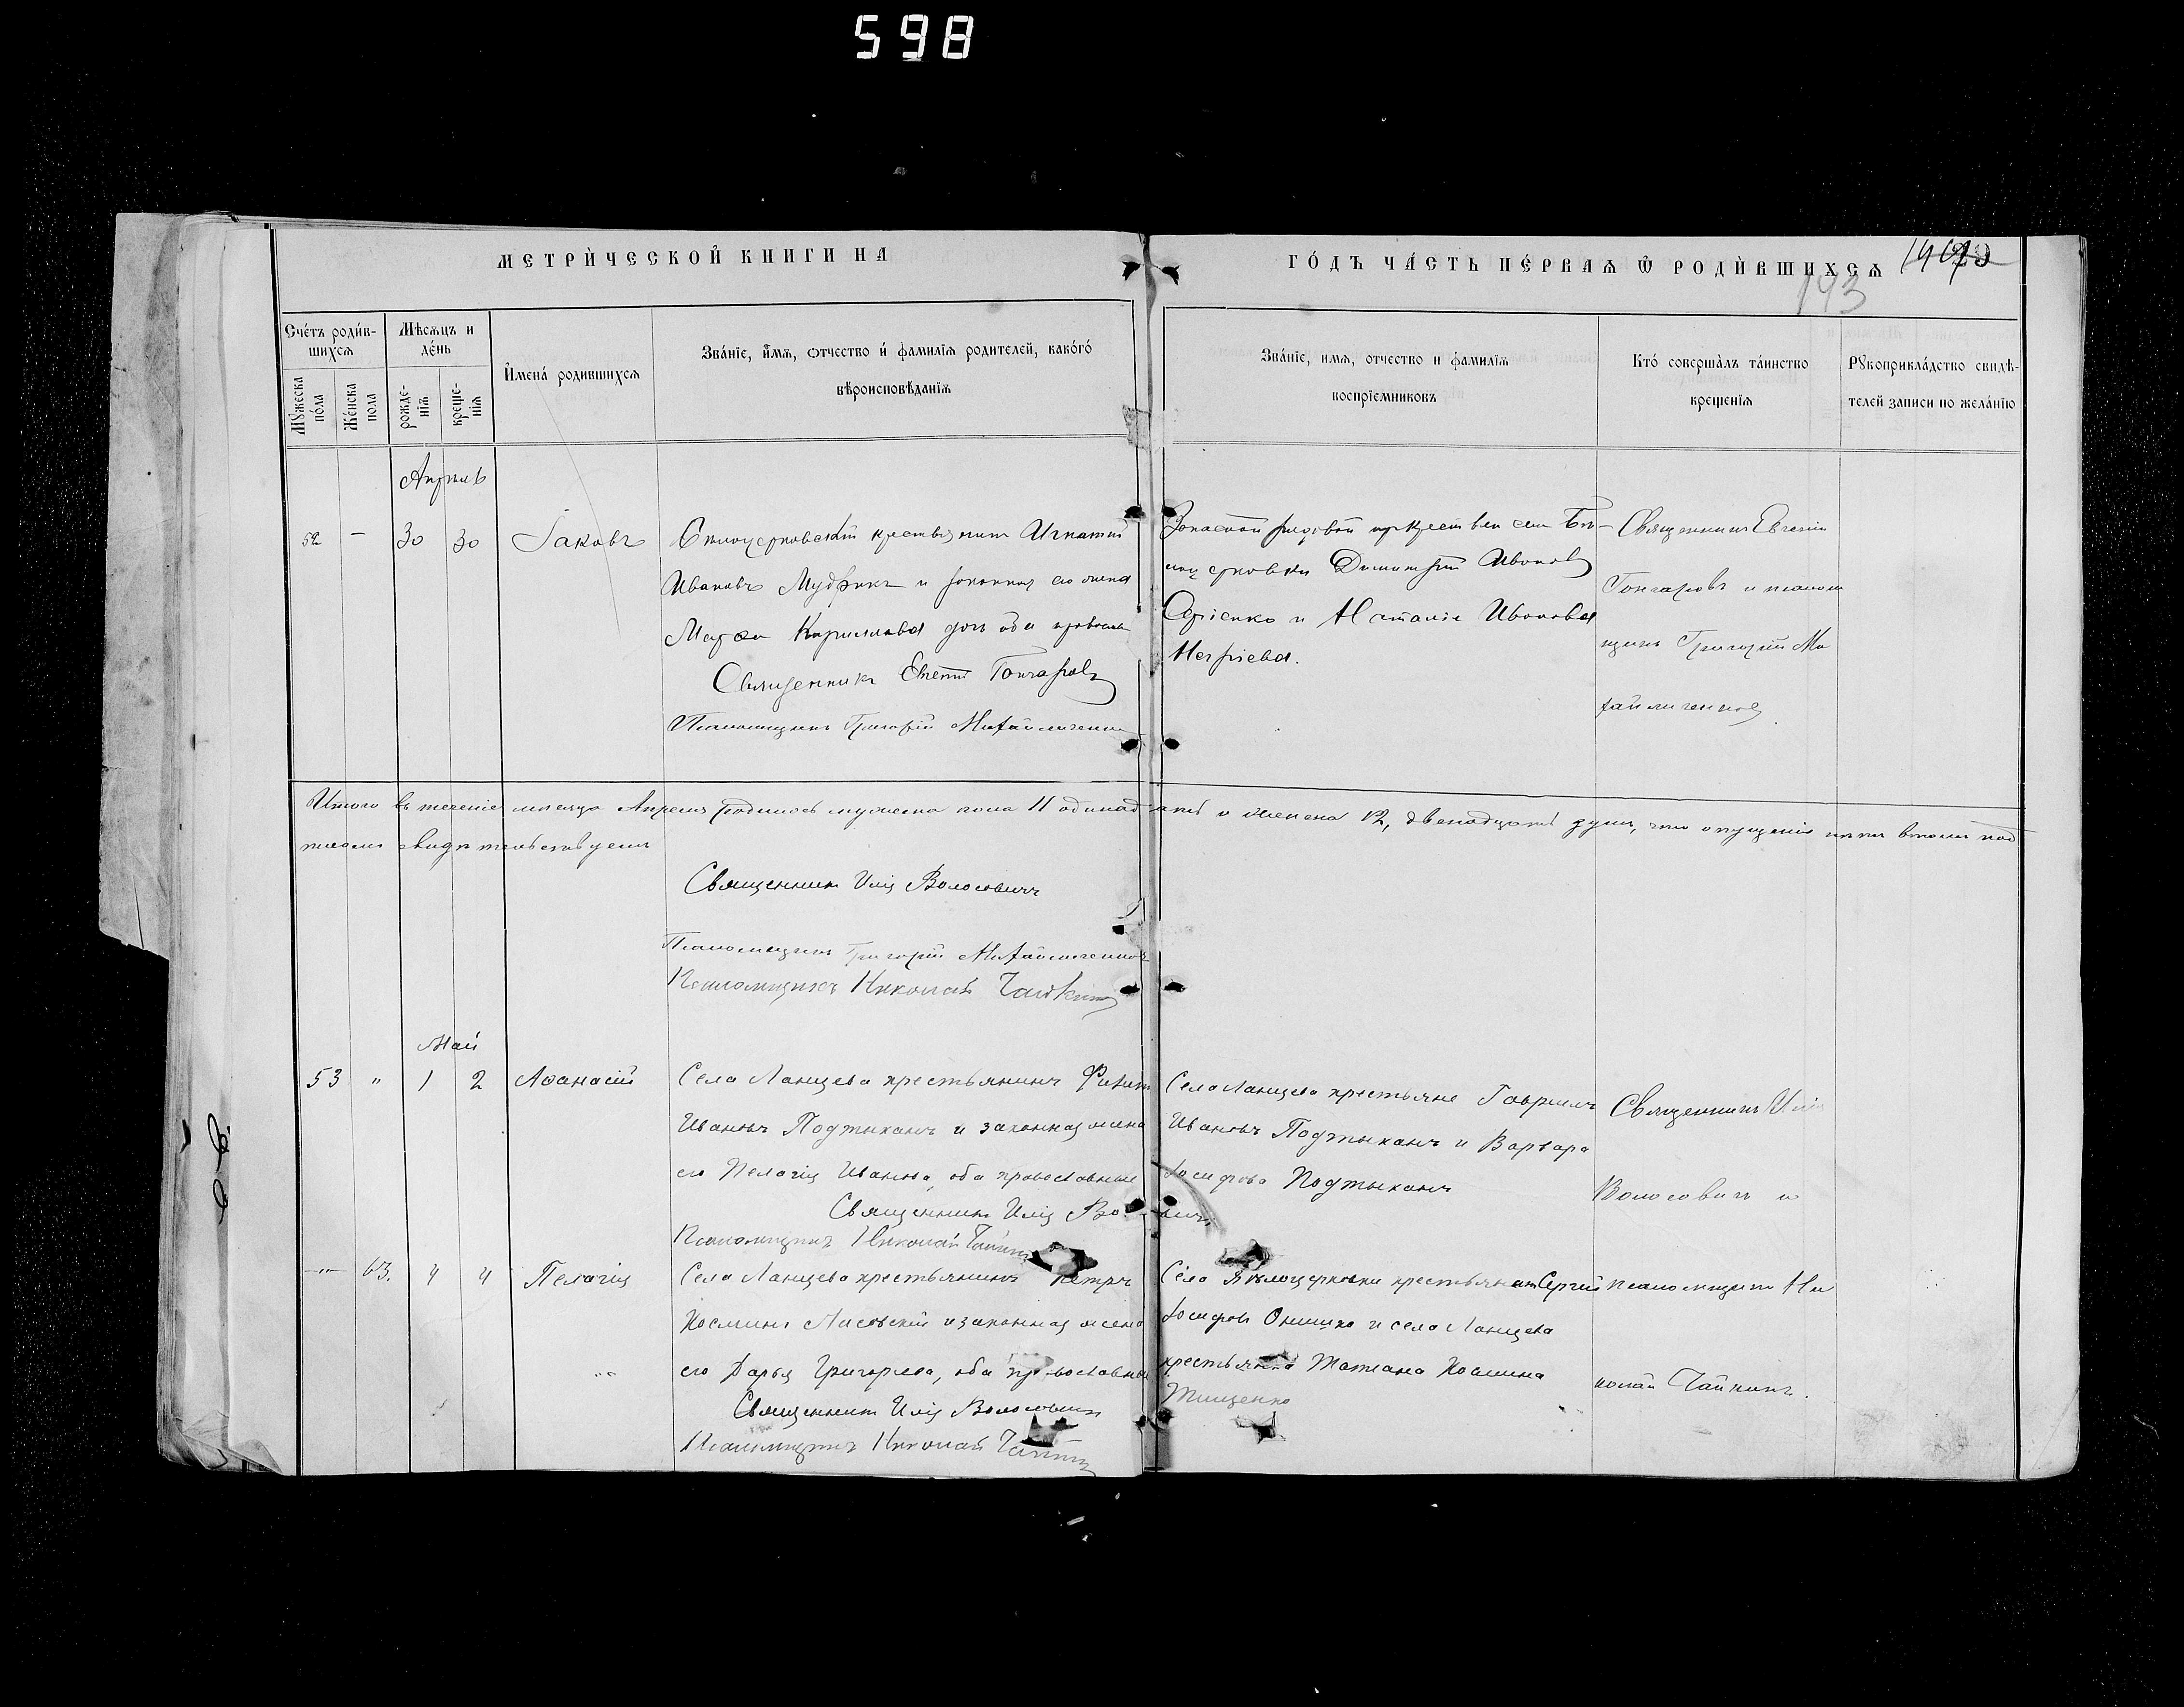 598
МЕТРИЧЕСКОЙ КНИГИ НА
ГОДЪ ЧАСТЬ ПЕРВАЯ Ѿ РОДИВШИХСЯ
143
Счетъ родив-
шихся
Мѣсяцъ и
день
Мужеска
пола
Женска
пола
рожде-
нія
креще-
нія
Имена родившихся
Званіе, имя, отчество и фамилія родителей, какого
вѣроисповѣданія
Званіе, имя, отчество и фамилія
воспріемниковъ
Кто совершалъ таинство
крещенія
Рукоприкладство свидѣ-
телей записи по желанію
Апрѣль
52 — 30 30 Іаковъ
Бѣлоцерковскій крестьянинъ Игнатій
Ивановъ Мудрикъ и законная его жена
Марѳа Кириллова оба правосл
Священникъ Евгеній Гончаровъ
Псаломщикъ Григорій Михайличенко
Запасной рядовой изъ крестьян села Бѣ-
лоцерковки Димитрій Ивановъ
Сергіенко и Наталія Иванова
Священникъ Евгеній
Гончаровъ и псалом
щикъ Григорій Ми
хайличенко
Итого въ теченіе мѣсяца Апрѣля родилось мужеска пола 11 одинадцать и женска 12, двенадцать душъ, что
свидѣтельствуемъ
Священникъ Илія Волосовичъ
Псаломщикъ Григорій Михайличенко
Псаломщикъ Николай Чайкинъ
Май
53 " 1 2 Аѳанасій
Села Ланцева крестьянинъ
Ивановъ Подтыканъ и законная жена
его Пелагія Иванова, оба православные
Священникъ Илія Во
Псаломщикъ Николай Чайкинъ
Села Ланцева крестьяне Гавріилъ
Ивановъ Подтыканъ и Варвара
Іосифова Подтыканъ
Священникъ Илія
Волосовичъ и
—"— 63. 4 4 Пелагія
Села Ланцева крестьянинъ Петръ
Косминъ Лисовскій и законная жена
его Дарья Григорьева, оба православные
Священникъ Илія Волосовичъ
Псаломщикъ Николай Чайкинъ
Села Бѣлоцерковки крестьянинъ Сергій
Іосифовъ Онишко и села Ланцева
крестьянка Татіана Космина
Тищенко
псаломщикъ Ни
колай Чайкинъ.